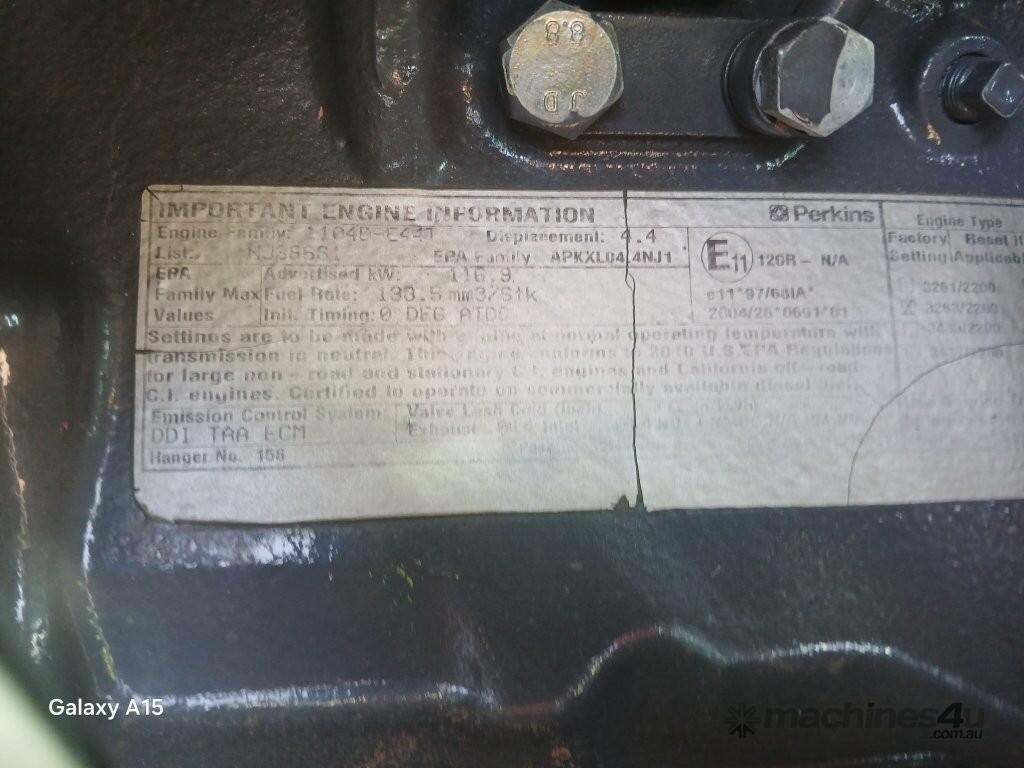 8.8
JD
IMPORTANT ENGINE INFORMATION
Perkins
Engine Family: 1104D-E44T Displacement: 4.4
List: EPA Family APKXL04.4NJ1
E11 120R- N/A
EPA Advertised kW: 116.9
Family Max Fuel Rate: 133.5 mm3/Stk
Values Init. Timing: 0 DEG ATDC
e11*97/68IA*
2004/26*0691*01
Engine Type
Factory Reset if
Setting Applicabl
3261/2200
3263/2200
Settings are to be made with engine at normal operating temperature with
transmission in neutral. This engine conforms to 2010 U.S.EPA Regulations
for large non-road and stationary C.I. engines and California off-road
C.I. engines. Certified to operate on commercially available diesel fuel.
Emission Control System: Valve Lash Cold (Inch)
DDI TAA ECM Exhaust Inlet
Hanger No. 158
Galaxy A15
machines4u
.com.au